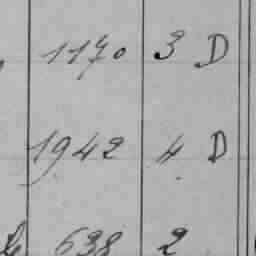 1170 3 D
1942 4 D
638 2